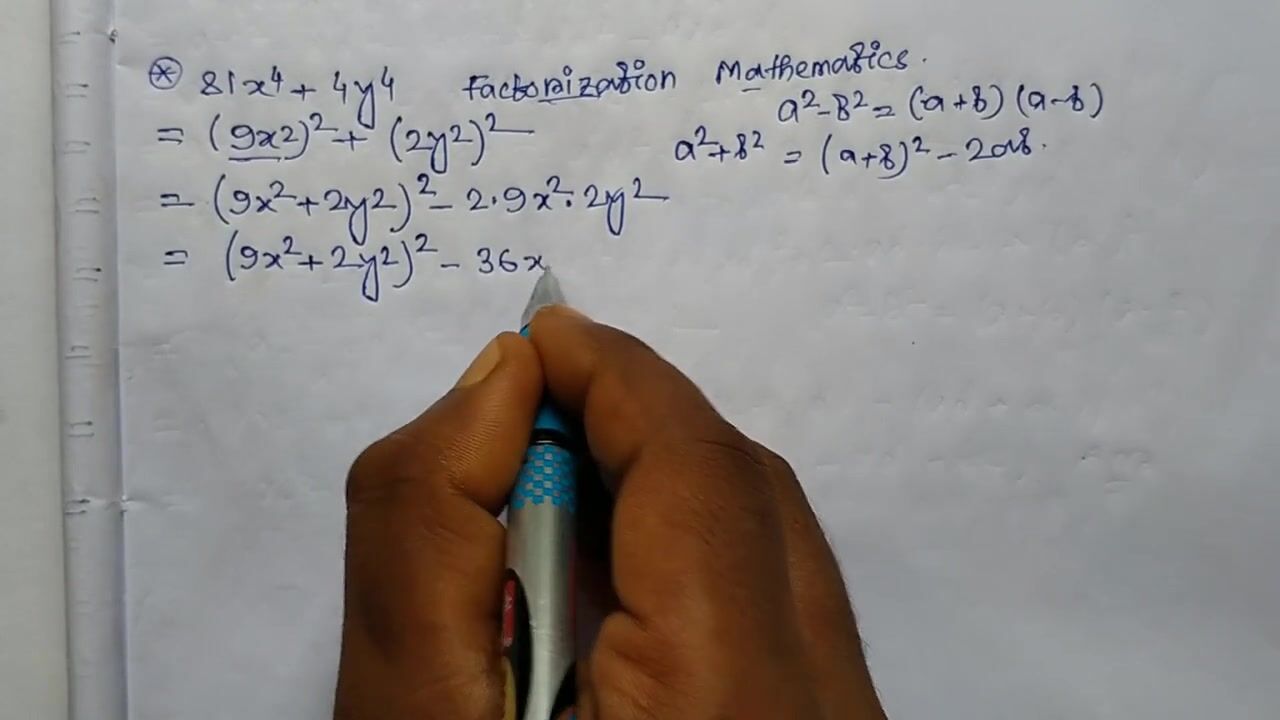 ⊛ 81x⁴ + 4y⁴ Factorization Mathematics.
a² - b² = (a+b) (a-b)
= (9x²)² + (2y²)²
a² + b² = (a+b)² - 2ab.
= (9x² + 2y²)² - 2·9x²·2y²
= (9x² + 2y²)² - 36x